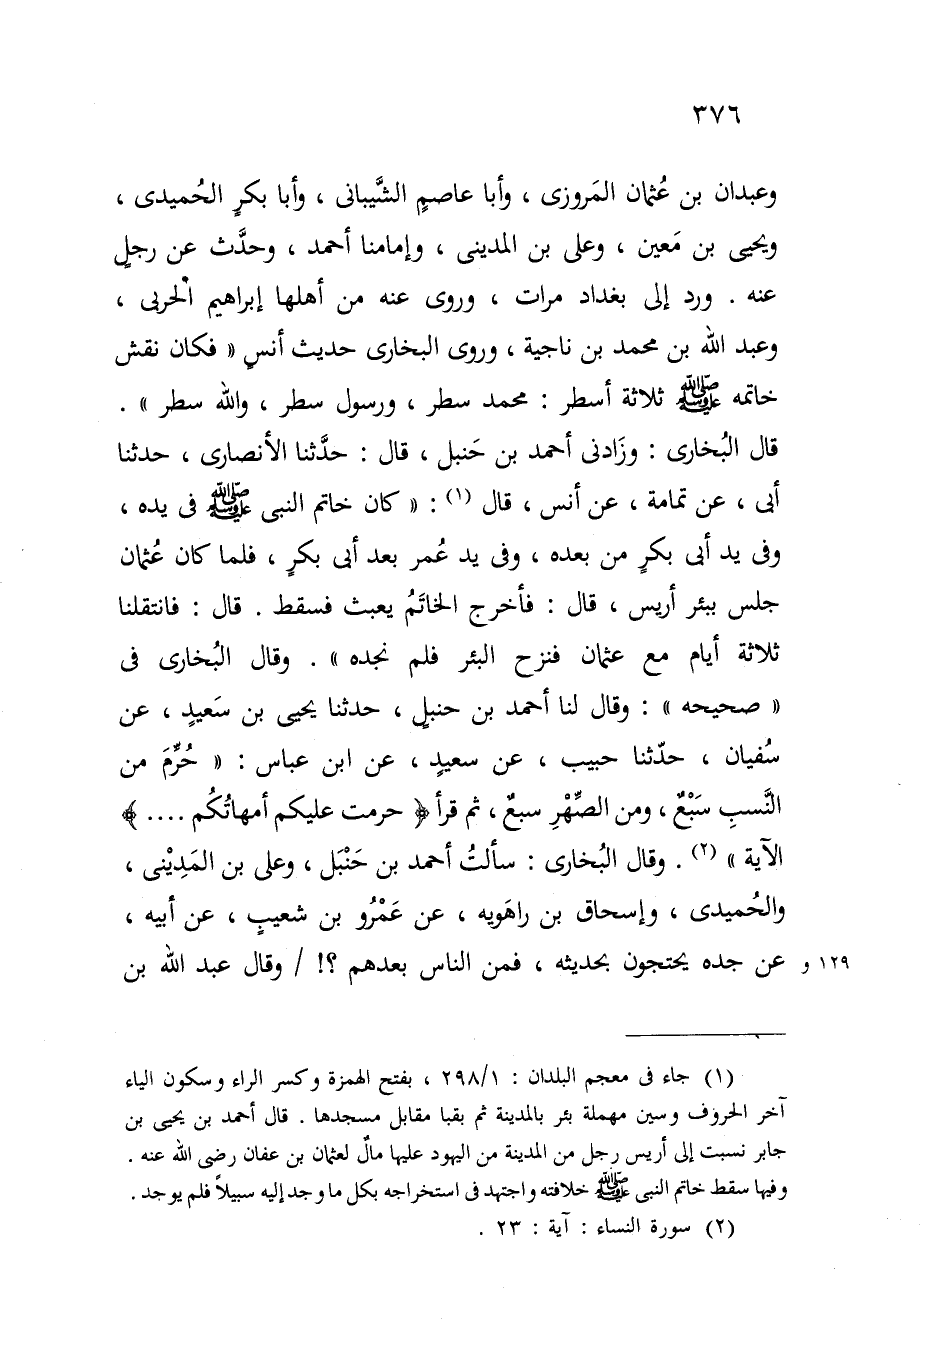 ٣٧٦
وعبدان بن عُثمان المَروزى ، وأبا عاصمٍ الشَّيبانى ، وأبا بكرٍ الحُميدى ،
ويحيى بن مَعين ، وعلى بن المدينى ، وإمامنا أحمد ، وحدَّث عن رجلٍ
عنه . ورد إلى بغداد مرات ، وروى عنه من أهلها إبراهيم الحربى ،
وعبد الله بن محمد بن ناجية ، وروى البخارى حديث أنسٍ « فكان نقش
خاتمه ﷺ ثلاثة أسطر : محمد سطر ، ورسول سطر ، والله سطر » .
قال البُخارى : وزَادنى أحمد بن حَنبل ، قال : حدَّثنا الأنصارى ، حدثنا
أبى ، عن تمامة ، عن أنس ، قال (١) : « كان خاتم النبى ﷺ فى يده ،
وفى يد أبى بكرٍ من بعده ، وفى يد عُمر بعد أبى بكرٍ ، فلما كان عُثمان
جلس ببئر أريس ، قال : فأخرج الخاتَمُ يعبث فسقط . قال : فانتقلنا
ثلاثة أيام مع عثمان فنزح البئر فلم نجده » . وقال البُخارى فى
« صحيحه » : وقال لنا أحمد بن حنبلٍ ، حدثنا يحيى بن سَعيدٍ ، عن
سُفيان ، حدّثنا حبيب ، عن سعيدٍ ، عن ابن عباس : « حُرِّمَ من
النَّسبِ سَبْعٌ ، ومن الصِّهْرِ سبعٌ ، ثم قرأ ﴿ حرمت عليكم أمهاتُكُم .... ﴾
الآية » (٢) . وقال البُخارى : سألتُ أحمد بن حَنْبَل ، وعلى بن المَدِيْنى ،
والحُميدى ، وإسحاق بن راهَويه ، عن عَمْرُو بن شعيبٍ ، عن أبيه ،
عن جده يحتجون بحديثه ، فمن الناس بعدهم ؟! / وقال عبد الله بن ١٢٩ و
(١) جاء فى معجم البلدان : ٢٩٨/١ ، بفتح الهمزة وكسر الراء وسكون الياء
آخر الحروف وسين مهملة بئر بالمدينة ثم بقبا مقابل مسجدها . قال أحمد بن يحيى بن
جابر نسبت إلى أريس رجل من المدينة من اليهود عليها مالٌ لعثمان بن عفان رضى الله عنه .
وفيها سقط خاتم النبى ﷺ خلافته واجتهد فى استخراجه بكل ما وجد إليه سبيلاً فلم يوجد .
(٢) سورة النساء : آية : ٢٣ .